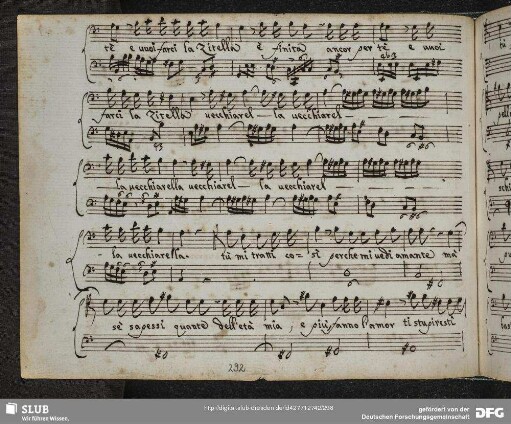 tè e vuoi farci la Zitella è finita ancor per tè e vuoi
farci la Zitella vecchiarel - la vecchiarel
la vecchiarella vecchiarel - la vecchiarel
la vecchiarella. tù mi tratti co = sì perche mi vedi amante mà
se sapessi quante dell'età mia, e più fanno l'amor ti stupiresti
292
SLUB
Wir führen Wissen.
gefördert von der
Deutschen Forschungsgemeinschaft
DFG